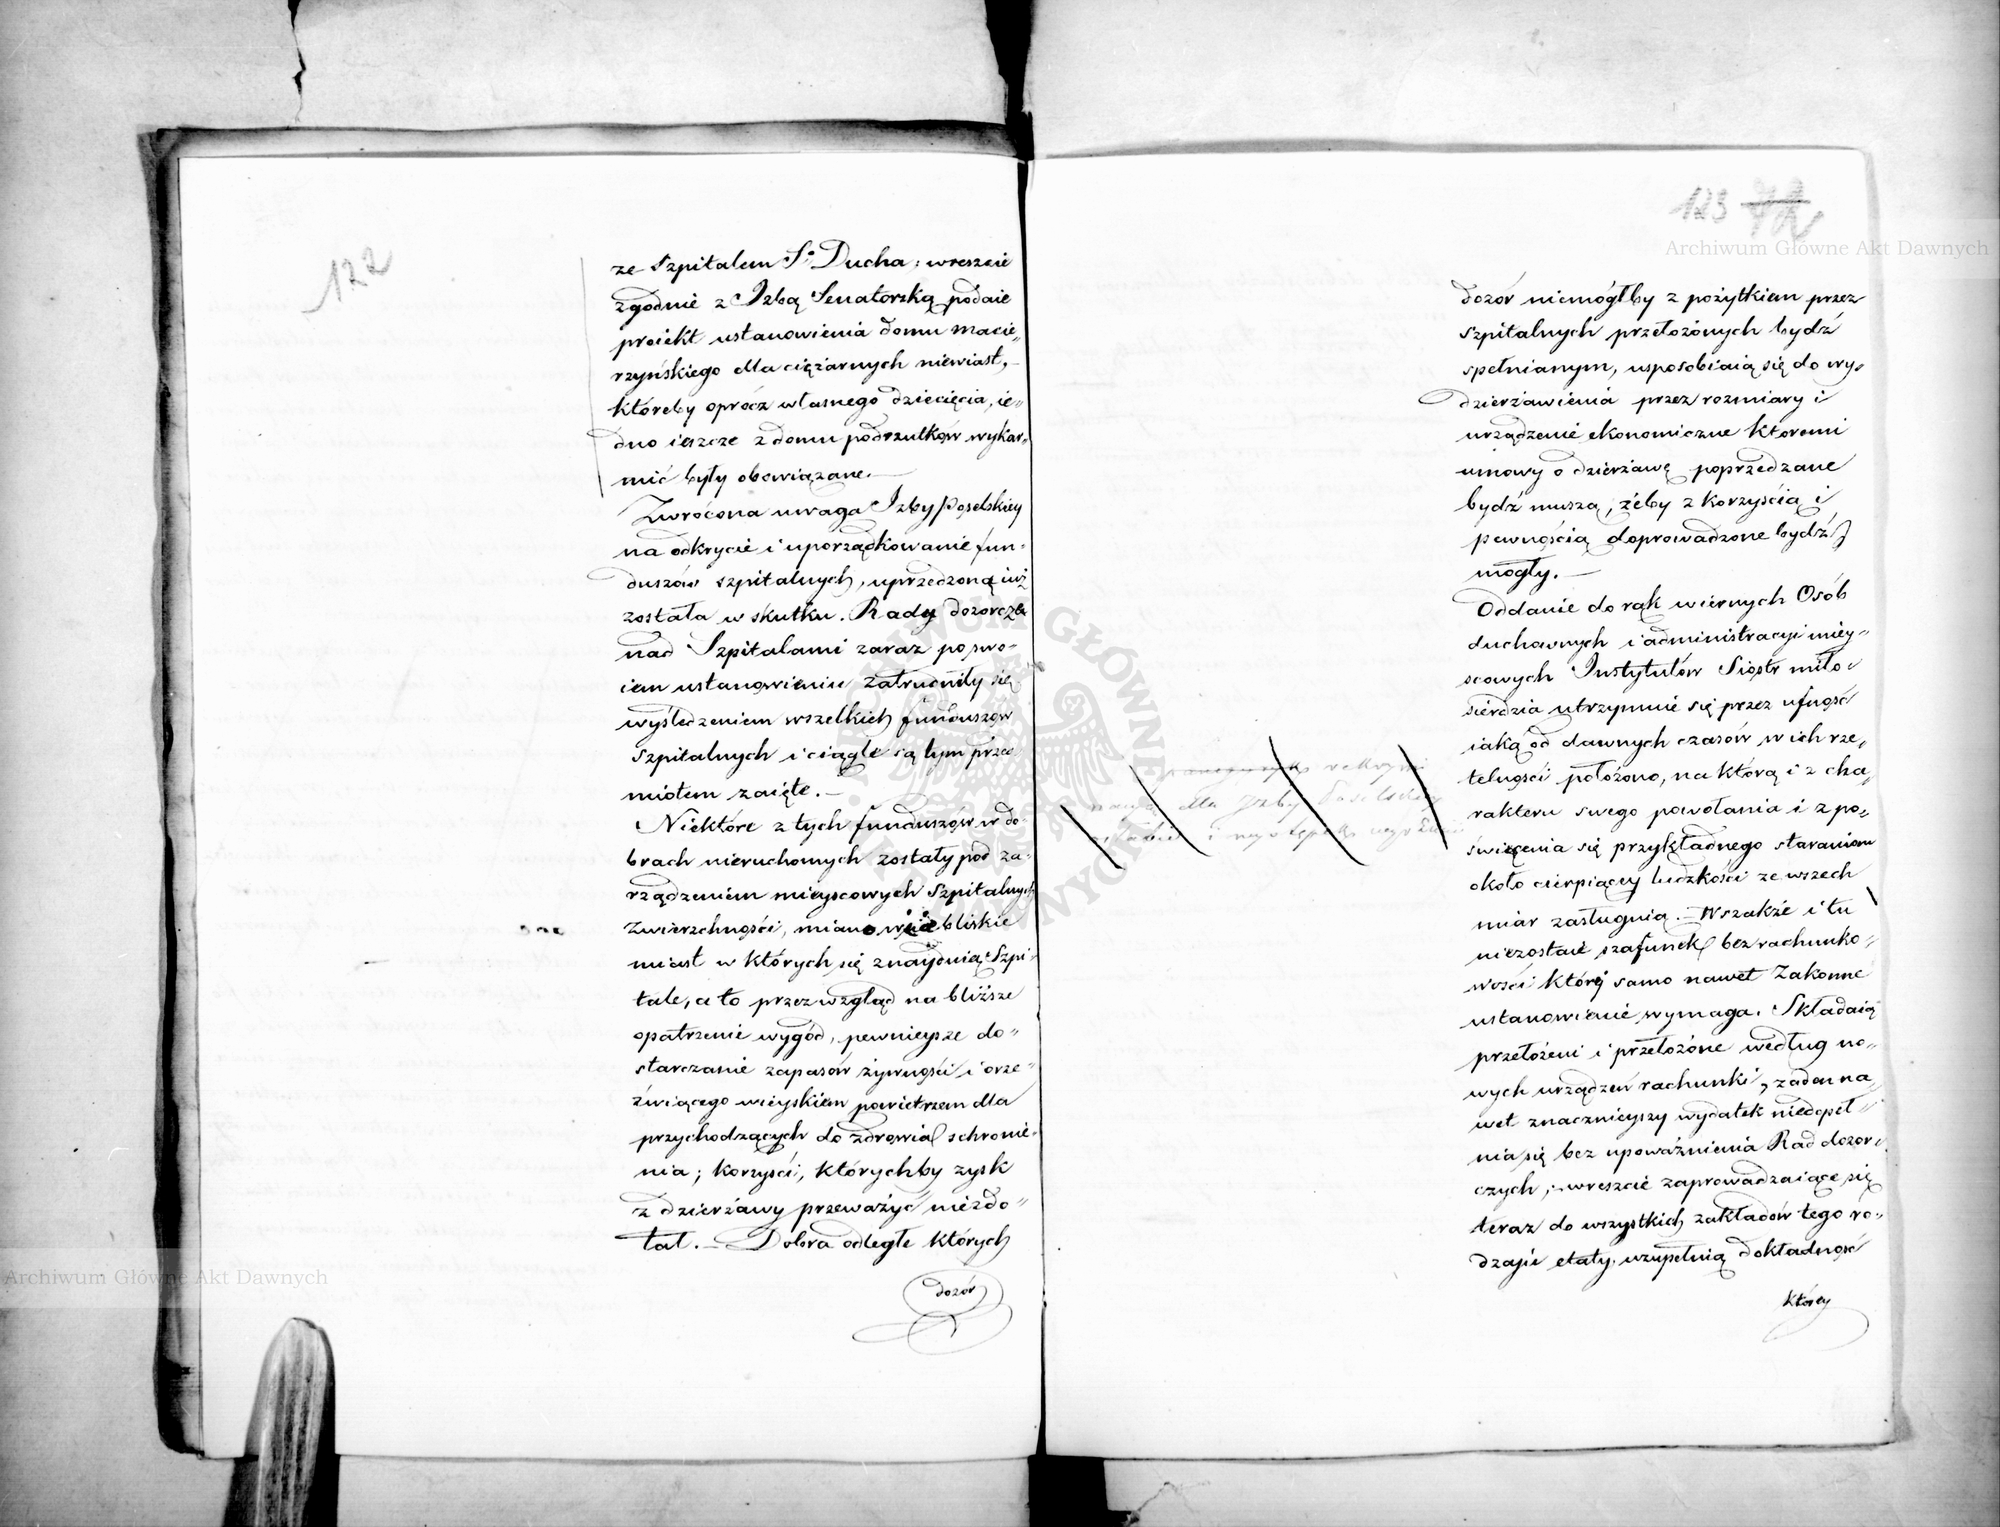 122
ze Szpitalem Sgo Ducha; wreszcie
zgodnie z Izbą Senatorską podaie
proiekt ustanowienia domu macie„
rzyńskiego dla ciężarnych niewiast,
któreby oprócz własnego dziecięcia, ie„
dno ieszcze z domu podrzutków wykar„
mić były obowiązane.—
Zwrócona uwaga Izby Poselskiey
na odkrycie i uporządkowanie fun„
duszów szpitalnych, uprzedzoną iuż
została w skutku. Rady dozorcze
nad Szpitalami zaraz po swo„
iem ustanowieniu zatrudniły się
wyśledzeniem wszelkich funduszow
szpitalnych i ciągle są tym przed
miotem zaięte.—
Niektóre z tych funduszów w do„
brach nieruchomych zostały pod za„
rządzeniem mieyscowych Szpitalnych
Zwierzchności, mianowicie bliskie
miast w których się znayduią Szpi„
tale, a to przez wzgląd na bliższe
opatrzenie wygód, pewnieysze do„
starczanie zapasów żywności i orze„
źwiącego wieyskiem powietrzem dla
przychodzących do zdrowia schronie„
nia; korzyści, których by zysk
z dzierżawy przeważyć niezdo„
łał.— Dobra odległe których
dozór
123
Archiwum Główne Akt Dawnych
dozór niemógłby z pożytkiem przez
szpitalnych przełożonych bydź
spełnianym, usposobiaią się do wy„
dzierżawienia przez rozmiary i
urządzenie ekonomiczne ktoremi
umowy o dzierżawę poprzedzane
bydź muszą, żeby z korzyścią i
pewnością doprowadzone bydź
mogły.—
Oddanie do rąk wiernych Osób
duchownych i administracyi miey„
scowych Instytutów Siostr miło„
sierdzia utrzymuie się przez ufność
iaką od dawnych czasów w ich rze„
telności położono, na którą i z cha„
rakteru swego powołania i z po„
święcenia się przykładnego staraniom
około cierpiącey ludzkości ze wszech
miar zasługuią.— Wszakże i tu
niezostaie szafunek bez rachunko„
wości którey samo nawet Zakonne
ustanowienie wymaga. Składaią
przełożeni i przełożone według no„
wych urządzeń rachunki, żaden na„
wet znacznieyszy wydatek niedopeł„
nia się bez upoważnienia Rad dozor„
czych; wreszcie zaprowadzaiące się
teraz do wszystkich zakładów tego ro„
dzaju etaty, uzupełnią dokładność
którey
dla Izby Poselskiey
Archiwum Główne Akt Dawnych
ARCHIWUM GŁÓWNE AKT DAWNYCH